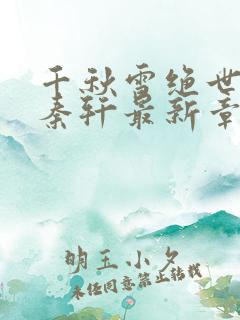 千秋雪绝世
秦轩最新章
明玉小夕
未经同意禁止转载